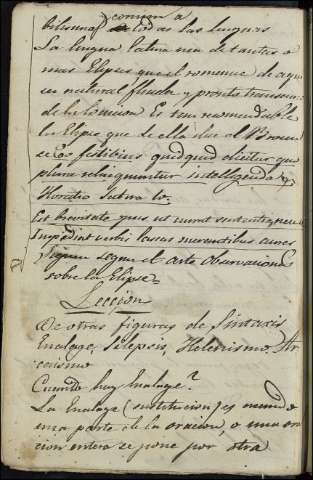 comun a
todas las lenguas
La lengua latina usa de tantas o
mas Elipses que el romance de aqui
su natural fluidez y pronta transicion
de la locucion Es tan recomendable
la Elipse que de ella dice el
Es festivius quidquid dicitur que
plura relinquuntur intelligenda y
Horatio Satira 10.
Est brevitate opus ut currat sententia neu se
Impediat verbis lassas onerantibus aures
sigue segun el arte observaciones
sobre la Elipse
Leccion
De otras figuras de sintaxis
Enalage, Silepsis, Helenismo, Ar
caismo
Cuando hay Enalage?
La Enalage (sustitucion) es cuando
una parte de la oracion, o una ora
cion entera se pone por otra